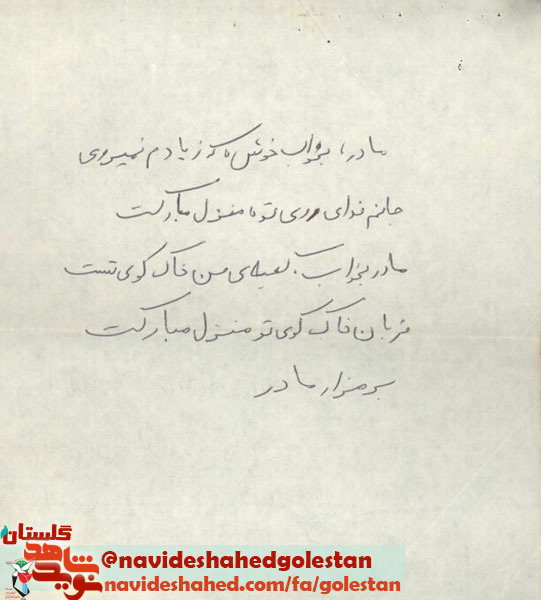 مادر، بخواب خوش که ز یادم نمیروی
جانم فدای روی تو، منزل مبارکت
مادر بخواب، کعبه‌ی من خاک کوی تست
قربان خاک کوی تو منزل مبارکت
بر مزار مادر
گلستان
نوید شاهد
@navideshahedgolestan
navideshahed.com/fa/golestan